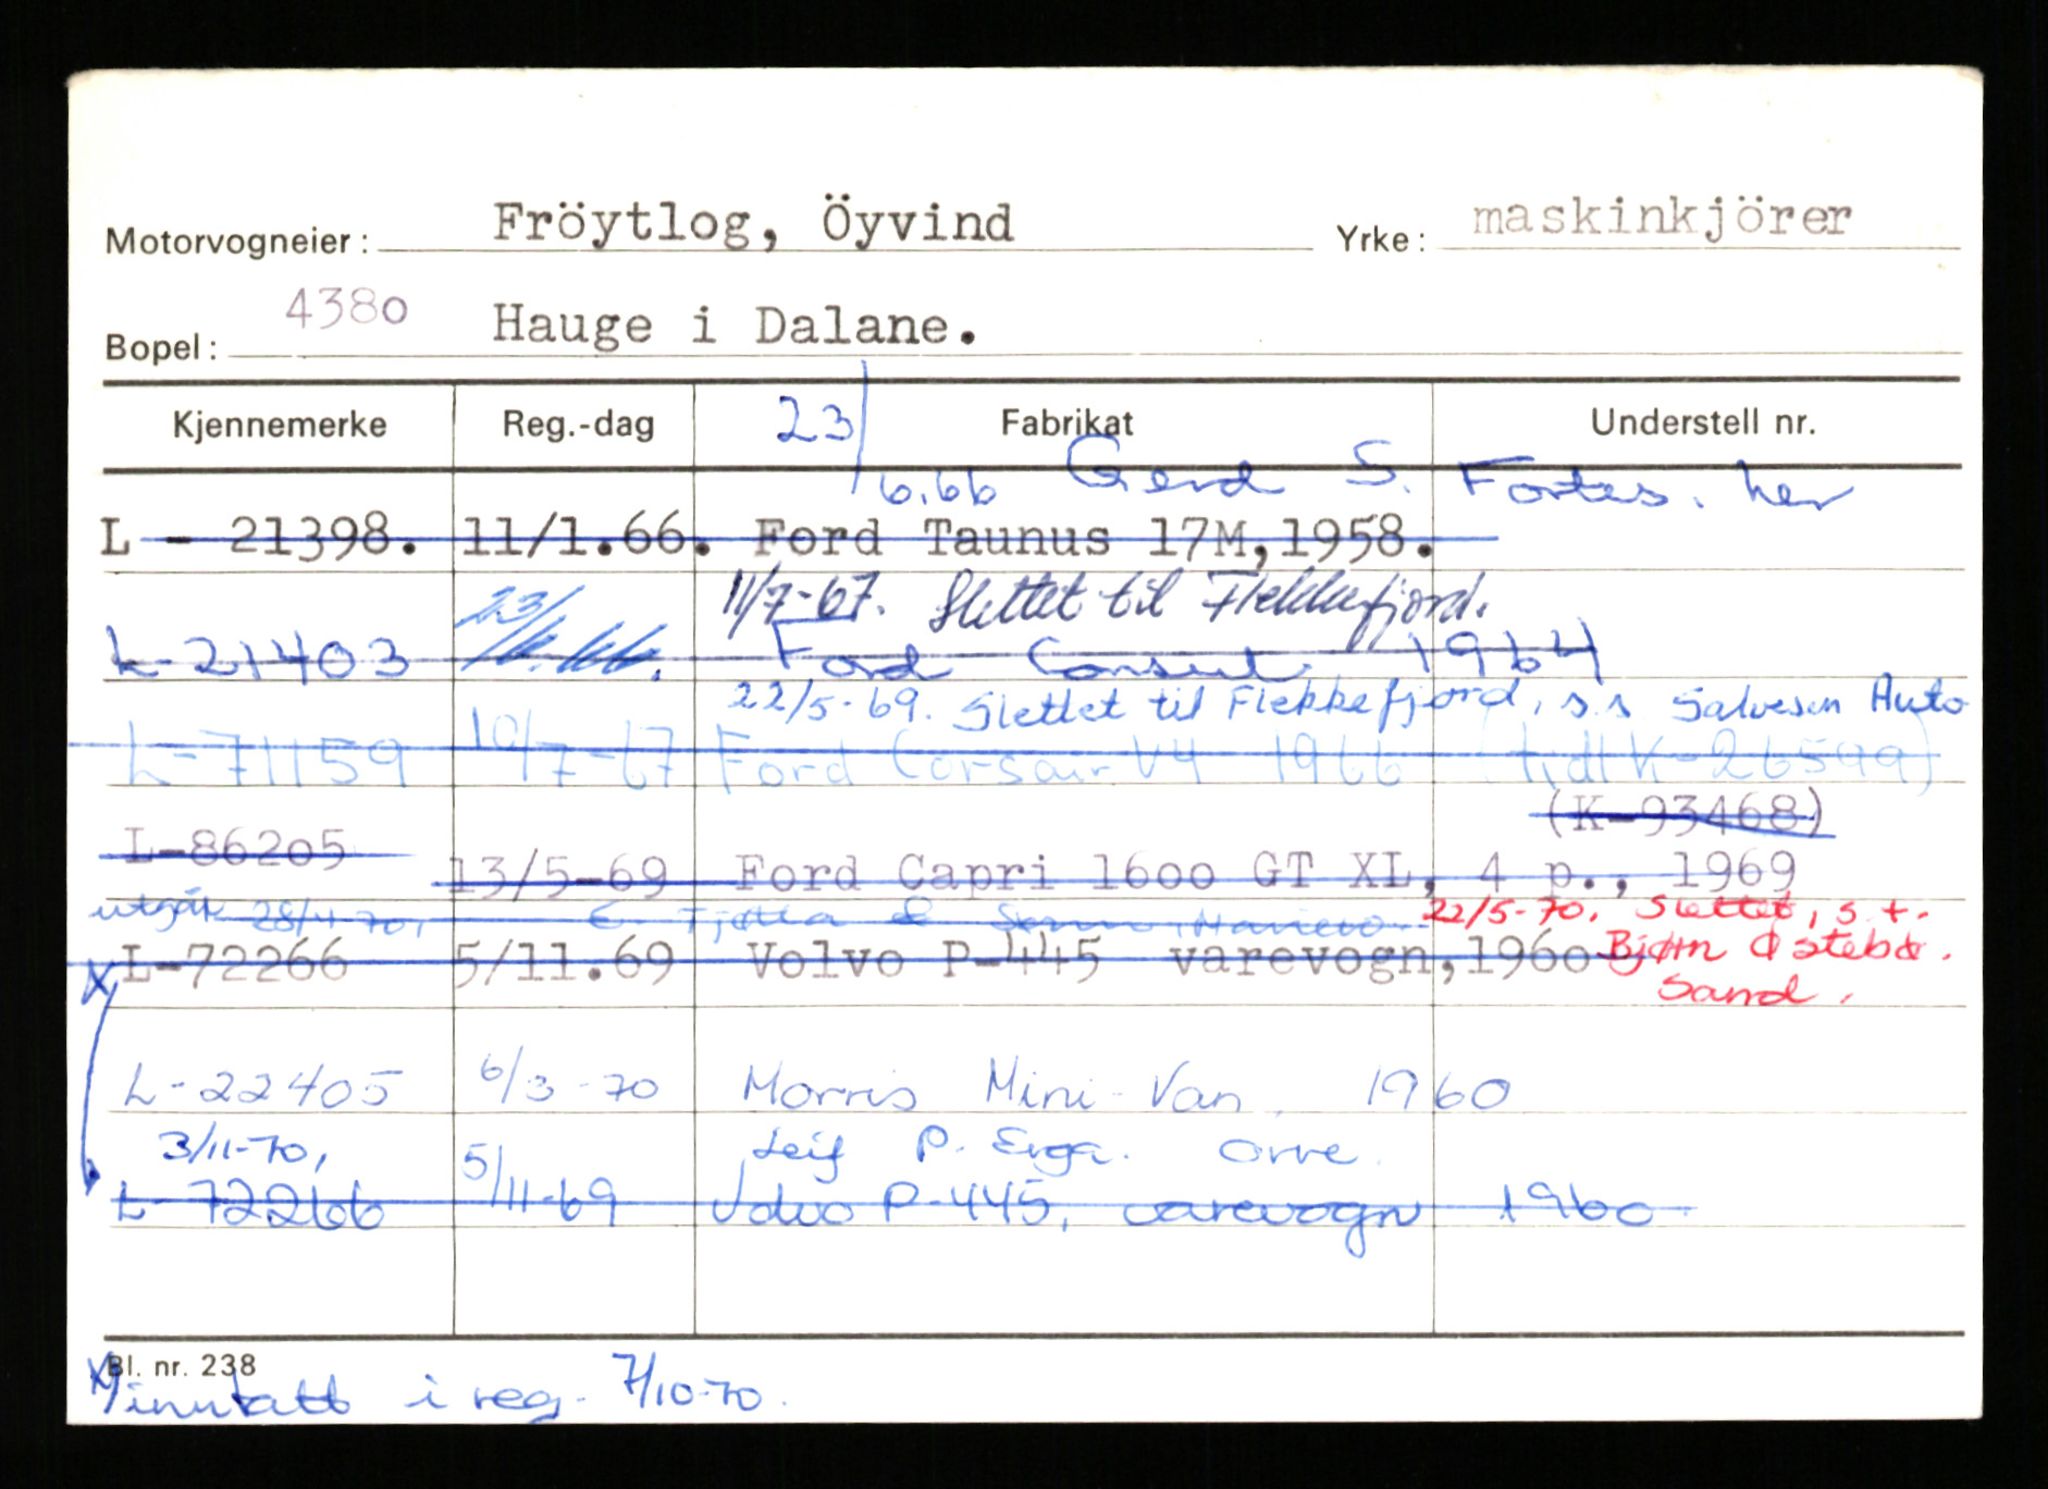 Motorvogneier: Fröytlog, Öyvind Yrke: maskinkjörer
Bopel: 4380 Hauge i Dalane.
Kjennemerke Reg.-dag Fabrikat Understell nr.
23/6.66 Gerd S. Fortes. her
L - 21398. 11/1.66. Ford Taunus 17M,1958.
11/7-67. Slettet til Flekkefjord.
L-21403 23/6.66. Ford Consul 1964
22/5-69. Slettet til Flekkefjord, s.s Salvesen Auto
L-71159 10/7-67 Ford Corsair V4 1966 (tidl K-26599)
(K-93468)
L-86205 13/5-69 Ford Capri 1600 GT XL, 4 p., 1969
utgår 28/4-70, E. Tjetla & Sønn, 22/5-70. Slettet, s.t.
L-72266 5/11.69 Volvo P-445 varevogn,1960 Bjørn Østebø.
Sand.
L-22405 6/3-70 Morris Mini-Van. 1960
3/11-70, Leif P. Erga. Orre.
L-72266 5/11-69 Volvo P-445, varevogn 1960
Bl. nr. 238
X/inntatt i reg. 7/10-70.